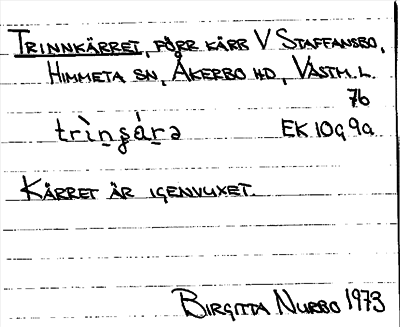 TRINNKÄRRET, FÖRR KÄRR V STAFFANSBO,
HIMMETA SN, ÅKERBO HD, VÄSTM. L.
76
EK 10G 9a
KÄRRET ÄR IGENVUXET.
BIRGITTA NURBO 1973